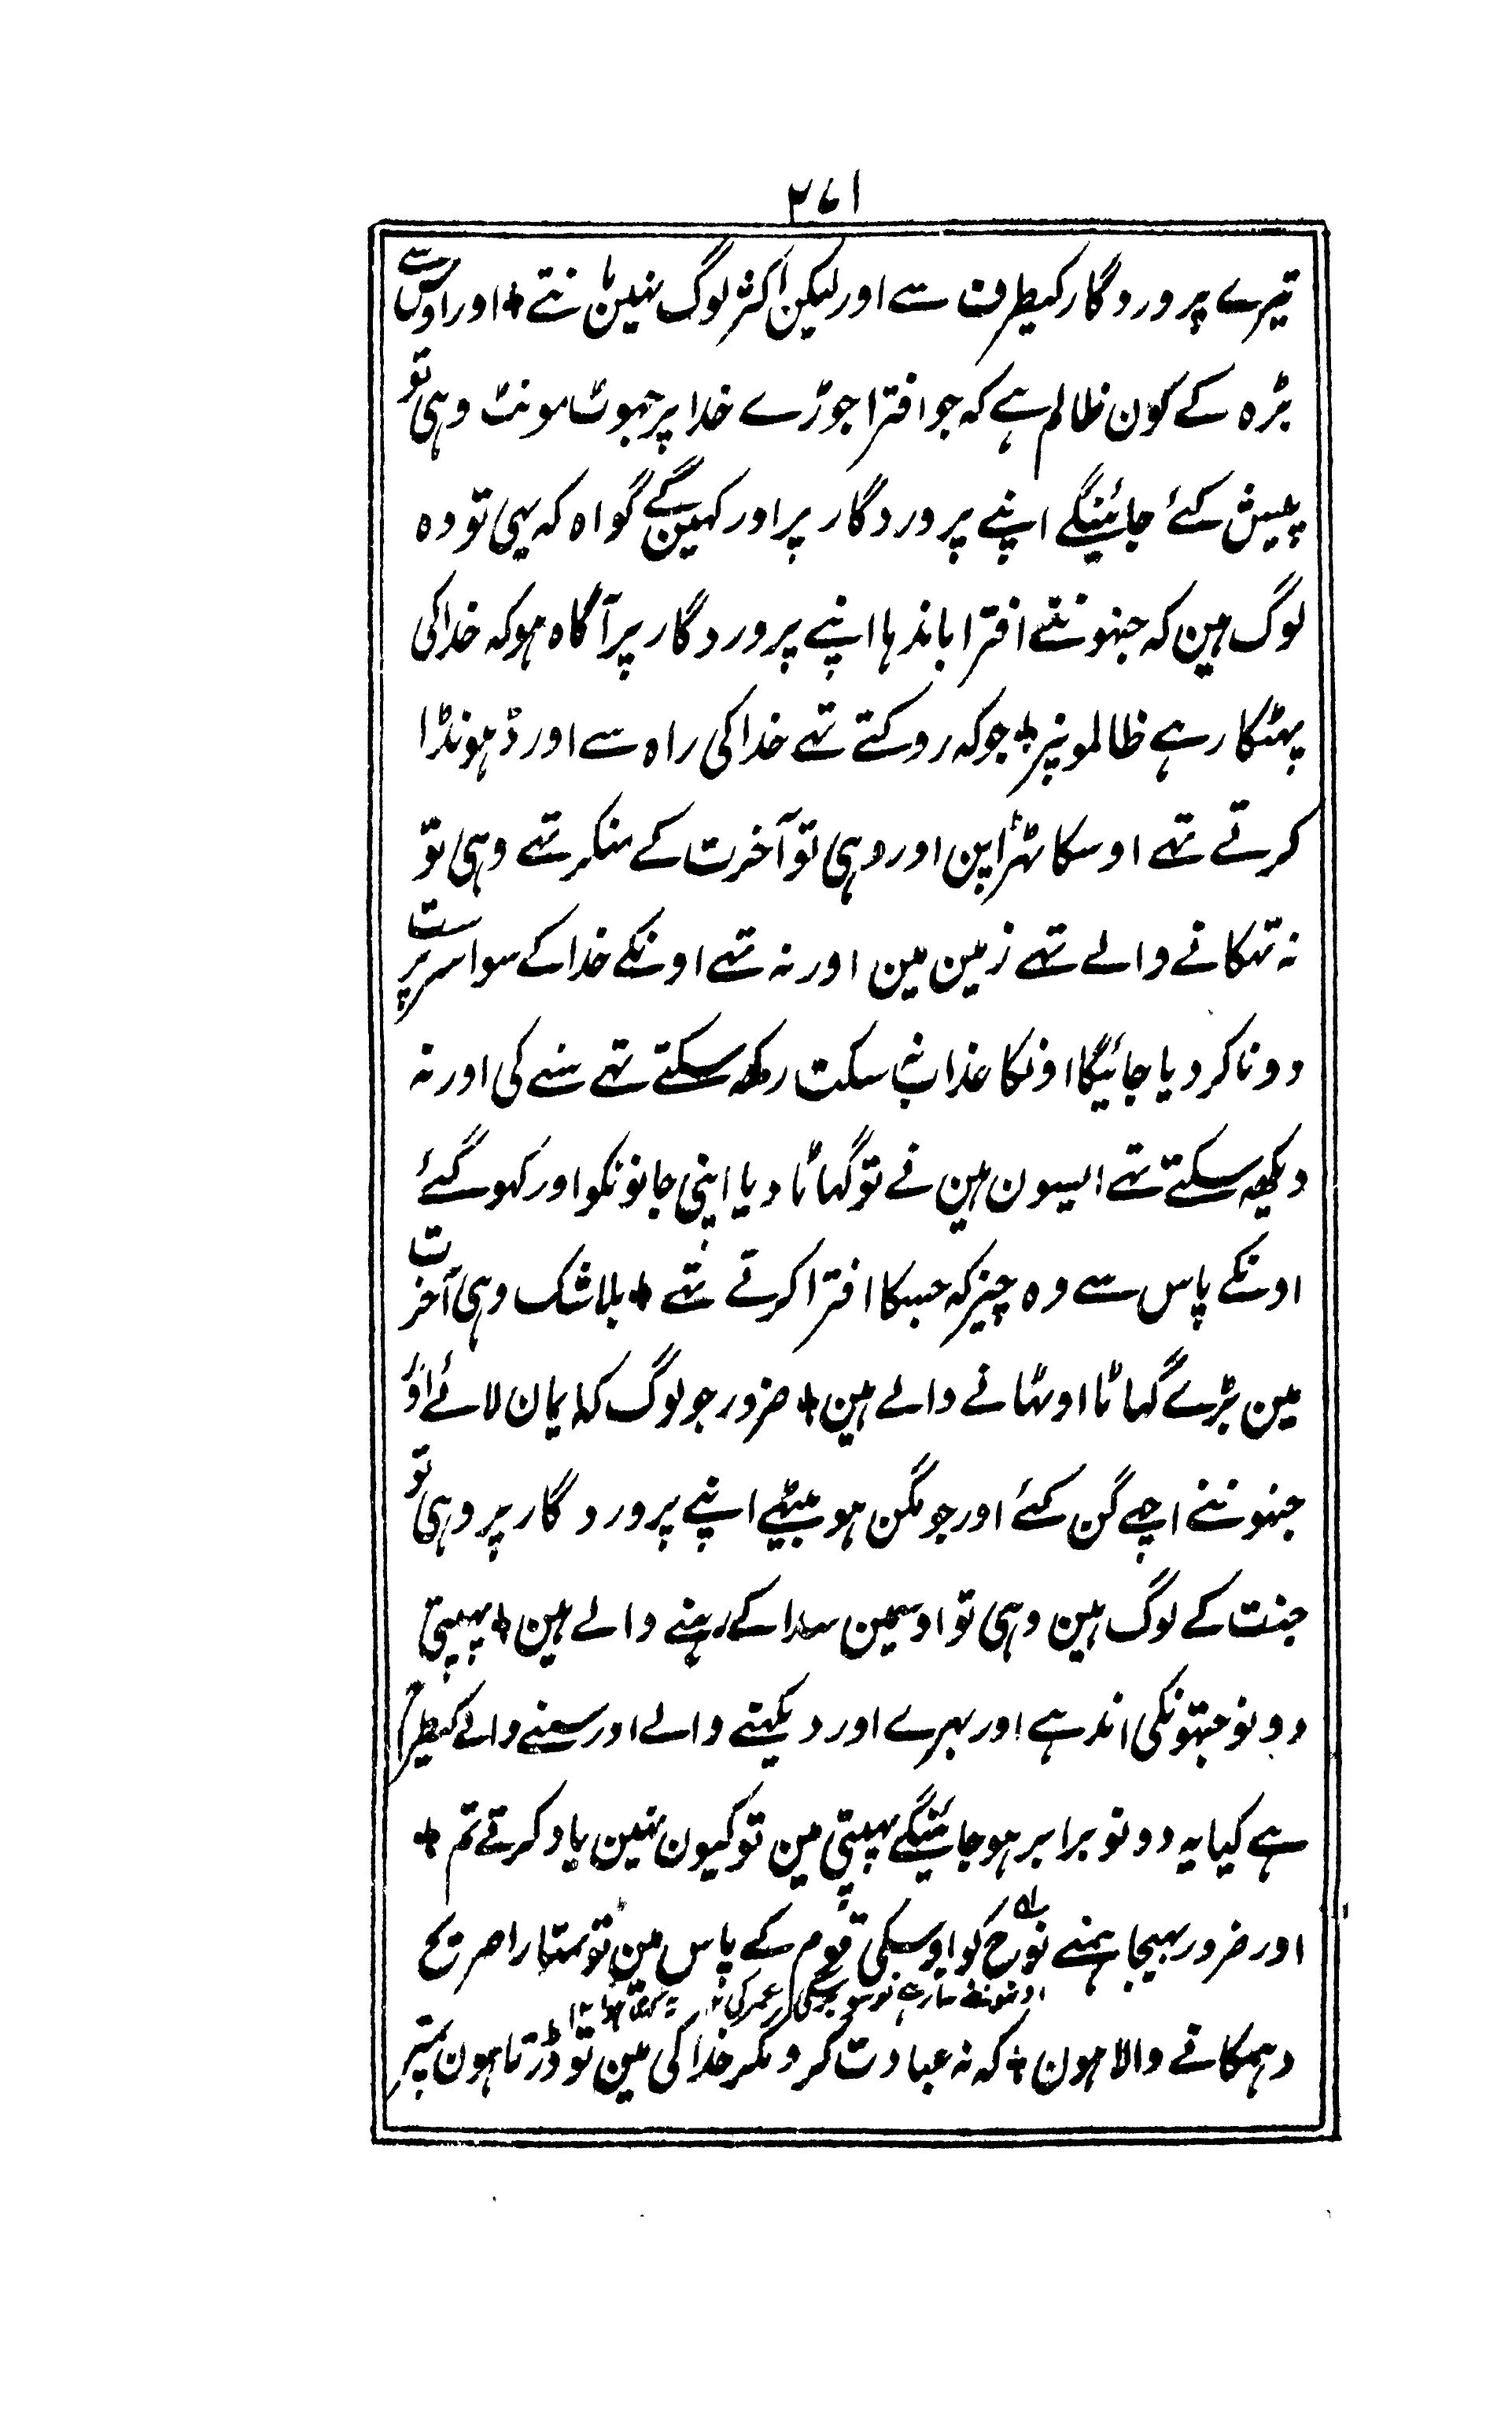 ۲۷۱
تیرے پروردگار کیطرف سے اور لیکن اکثر لوگ نہین مانتے + اور اوس سے
بڑہ کے کون ظالم ہے کہ جو افترا جوڑے خدا پر جہوٹ موٹ وہی تو
پیش کئے جائینگے اپنے پروردگار پر اور کہین گے گواہ کہ یہی تو وہ
لوگ ہین کہ جنہوننے افترا باندہا اپنے پروردگار پر آگاہ ہو کہ خدا کی
پہٹکار ہے ظالمونپر + جو کہ روکتے تہے خدا کی راہ سے اور ڈہونڈا
کرتے تہے اوسکا ٹہڑاپن اور وہی تو آخرت کے منکر تہے وہی تو
نہ تہکانے والے تہے زمین مین اور نہ تہے اونکے خدا کے سوا سرپرست
دونا کر دیا جائیگا اونکا عذاب نہ سکت رکھ سکتے تہے سننے کی اور نہ
دیکھ سکتے تہے ایسون ہین نے تو گہاٹا دیا اپنی جانونکو اور کہو گئے
اونکے پاس سے وہ چیز کہ جسکا افترا کرتے تہے + بلاشک وہی آخرت
مین بڑے گہاٹا اوٹہانے والے ہین + ضرور جو لوگ کہ ایمان لائے اور
جنہوننے اچہے گن کئے اور جو مگن ہو بیٹہے اپنے پروردگار پر وہی تو
جنت کے لوگ ہین وہی تو اوسمین سدا کے رہنے والے ہین + پہبتی
دونو جہتونکی اندہے اور بہرے اور دیکہنے والے اور سننے والے کیطرح
ہے کیا یہ دونو برابر ہو جائینگے پہبتی مین تو کیون نہین یاد کرتے تم +
اور ضرور بہیجا ہمنے نوح کو اوسکی قوم کے پاس مین تو تمہارا صریح
دہمکانے والا ہون + کہ نہ عبادت کرو مگر خدا کی مین تو ڈرتا ہون تمپر